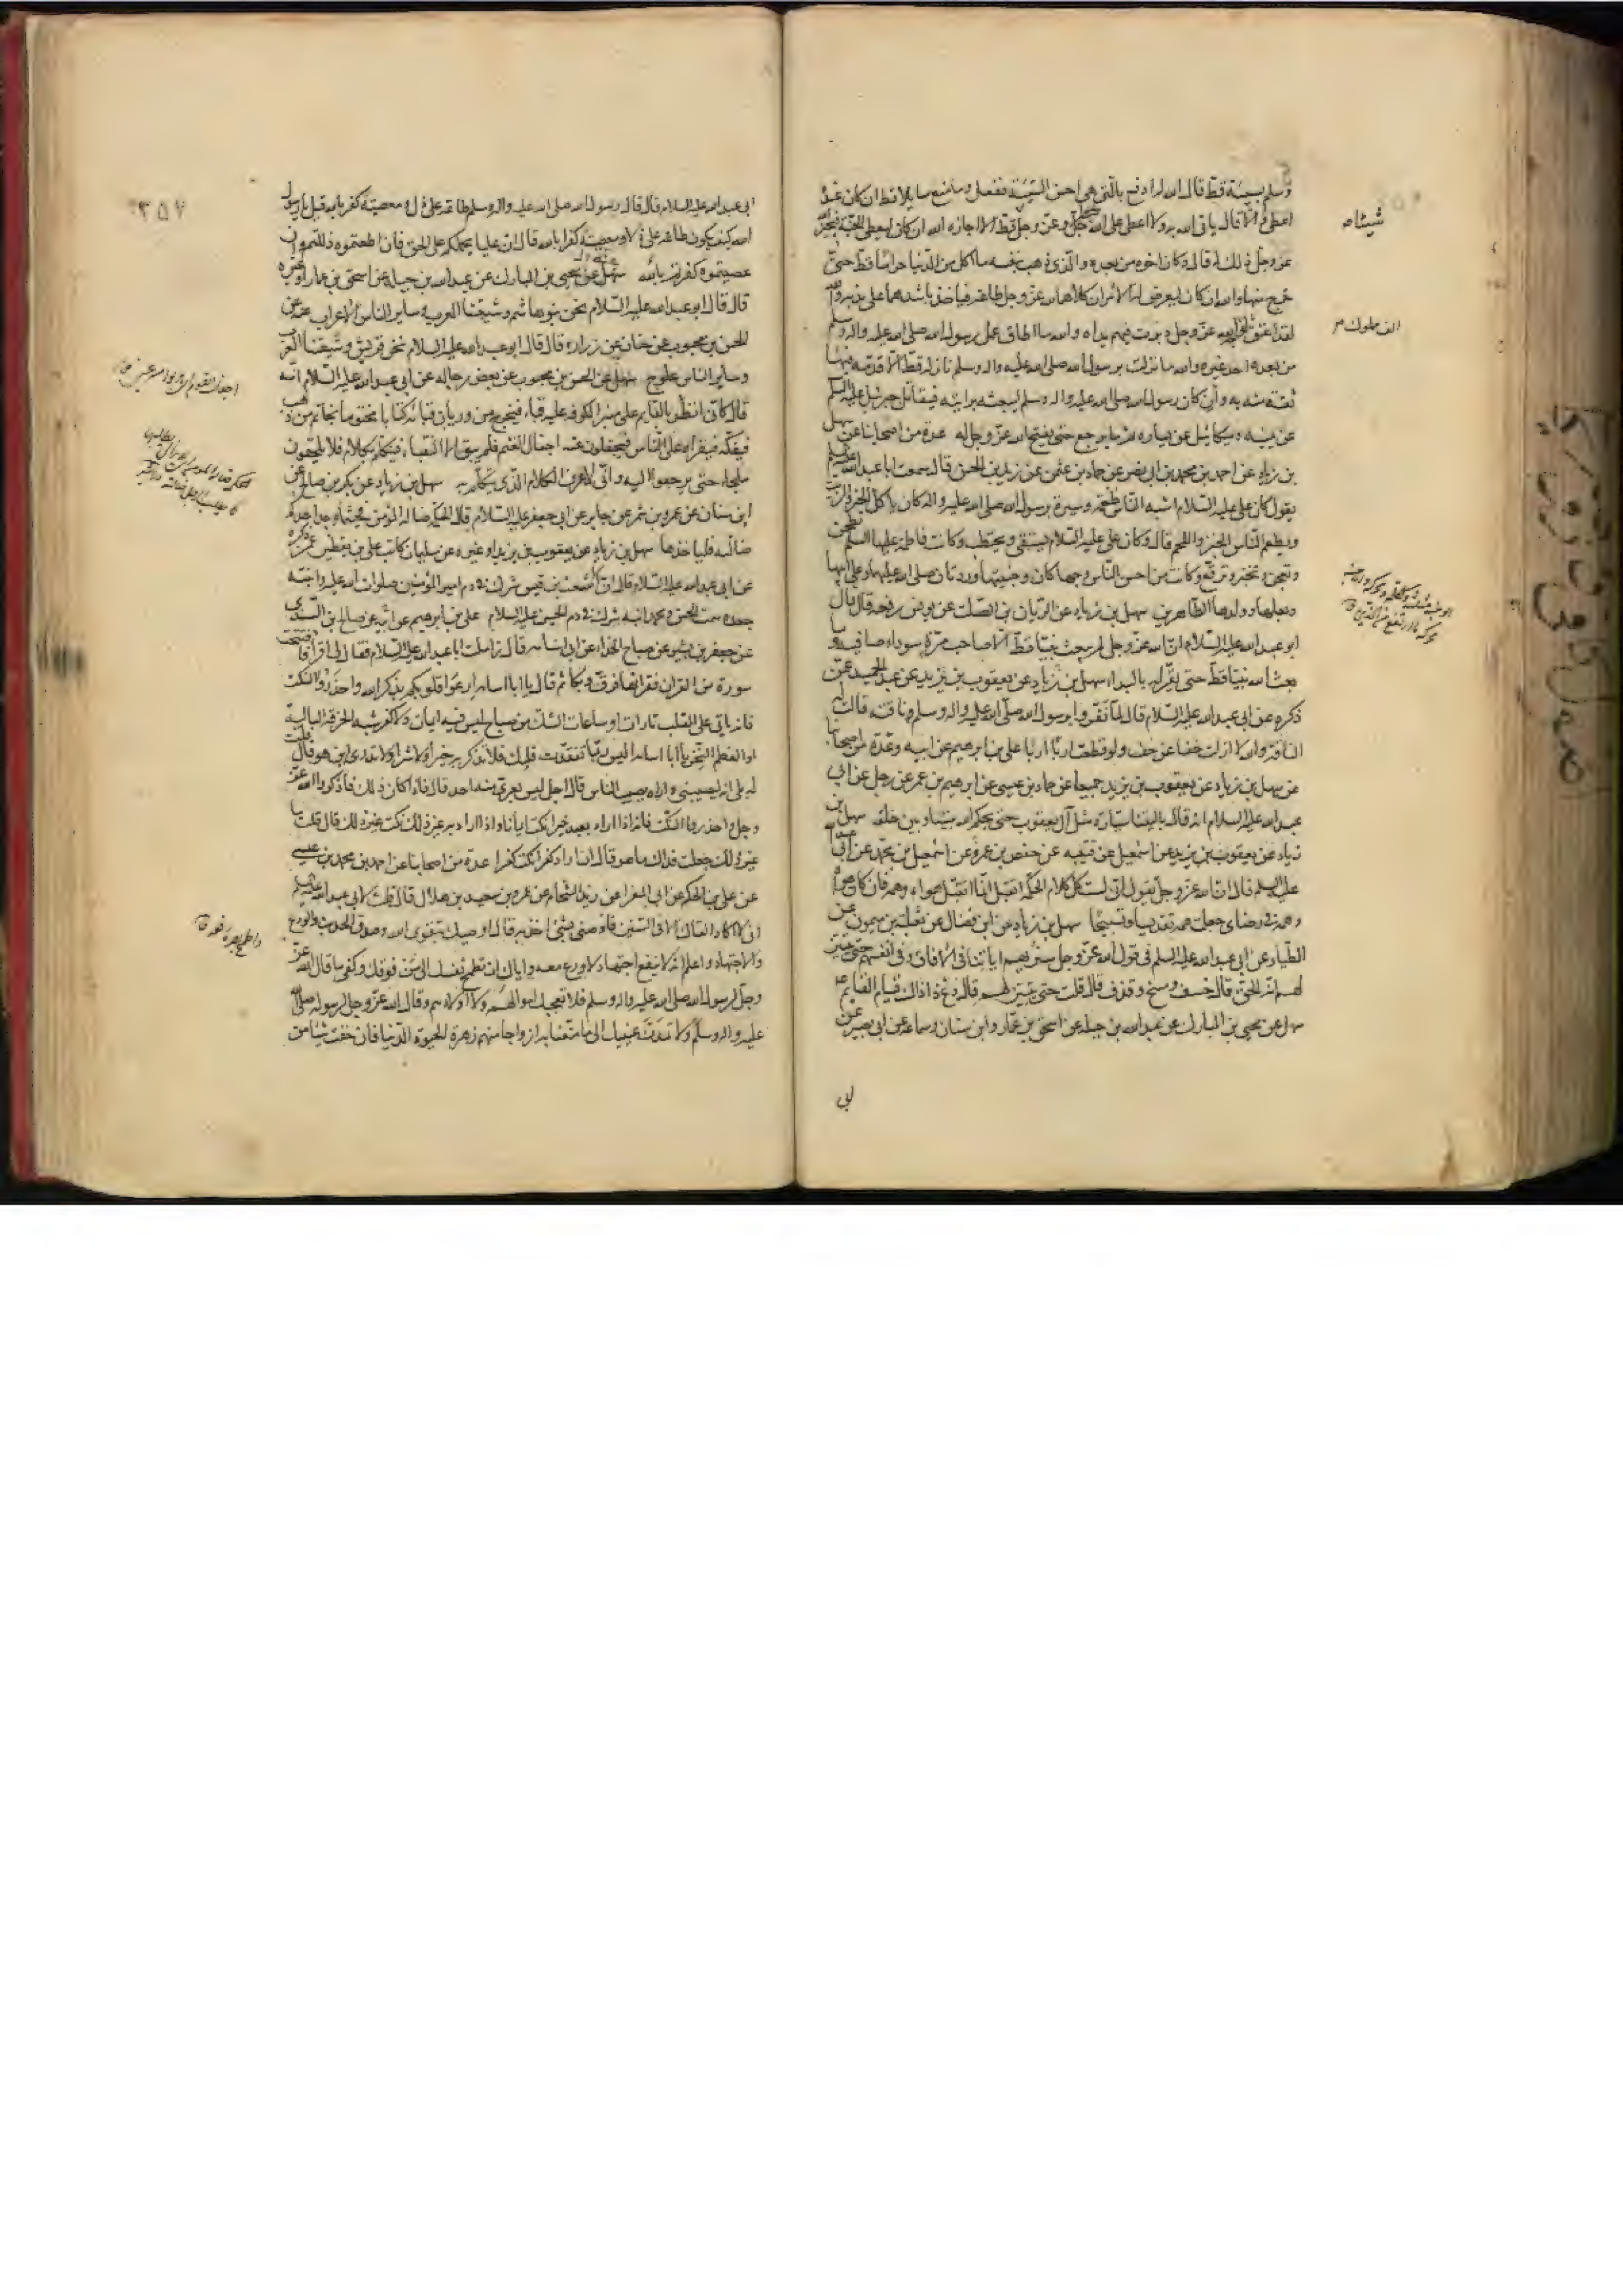 وسلم بسيئة قط قال الله له ادفع بالتي هي احسن السيئة ففعل وما منع سايلا قط ان كان عنده
اعطى والا قال ياتي الله به ولا اعطى على الله عز وجل شيئا قط الا اجازه الله ان كان ليعطي الجنة فيجيز الله
عز وجل ذلك له قال وكان اخوه من بعده والذي ذهب بنفسه ما اكل من الدنيا حراما قط حتى
خرج منها والله ان كان ليعرض له الامران كلاهما لله عز وجل طاعة فياخذ باشدهما على بدنه والله
لقد اعتق الف مملوك لوجه الله عز وجل دبرت فيهم يداه والله ما اطاق عمل رسول الله صلى الله عليه واله وسلم
من بعده احد غيره والله ما نزلت برسول الله صلى الله عليه واله وسلم نازلة قط الا قدمه فيها
ثقة منه به وان كان رسول الله صلى الله عليه واله وسلم ليبعثه برايته فيقاتل جبرئيل عليه السلم
عن يمينه وميكائيل عن يساره ثم ما يرجع حتى يفتح الله عز وجل له عدة من اصحابنا عن سهل
بن زياد عن احمد بن محمد بن ابي نصر عن حماد بن عثمن عن زيد بن الحسن قال سمعت ابا عبد الله عليه السلم
يقول كان علي عليه السلام اشبه الناس طعمة وسيرة برسول الله صلى الله عليه واله كان ياكل الخبز والزيت
ويطعم الناس الخبز واللحم قال وكان علي عليه السلام يستقي ويحتطب وكانت فاطمة عليها السلم تطحن
وتعجن وتخبز وترقع وكانت من احسن الناس وجها كان وجنتيها وردتان صلى الله عليها وعلى ابيها
وبعلها وولدها الطاهرين سهل بن زياد عن الريان بن الصلت عن يونس رفعه قال قال
ابو عبد الله عليه السلام ان الله عز وجل لم يبعث نبيا قط الا صاحب مرة سوداء صافية وما
بعث الله نبيا قط حتى يقر له بالبداء سهل بن زياد عن يعقوب بن يزيد عن عبد الحميد عمن
ذكره عن ابي عبد الله عليه السلام قال لما نفروا برسول الله صلى الله عليه واله وسلم ناقته قالت له
الناقة والله لا ازلت خفا عن خف ولو قطعت اربا اربا علي بن ابرهيم عن ابيه وعدة من اصحابنا
عن سهل بن زياد عن يعقوب بن يزيد جميعا عن حماد بن عيسى عن ابرهيم بن عمر عن رجل عن ابي
عبد الله عليه السلام انه قال يا ليتنا سيارة مثل ال يعقوب حتى يحكم الله بيننا وبين خلقه سهل بن
زياد عن يعقوب بن يزيد عن اسمعيل عن قتيبة عن حفص بن عمر عن اسمعيل بن محمد عن ابي عبد الله
عليه السلم قال ان الله عز وجل يقول اني لست كل كلام الحكمة اتقبل انما اتقبل هواه وهمه فان كان هواه
وهمه في رضاي جعلت همه تقديسا وتسبيحا سهل بن زياد عن ابن فضال عن ثعلبة بن ميمون عن
الطيار عن ابي عبد الله عليه السلم في قول الله عز وجل سنريهم اياتنا في الافاق وفي انفسهم حتى يتبين
لهم انه الحق قال خسف ومسخ وقذف قال قلت حتى يتبين لهم قال دع ذا ذاك قيام القايم ع
سهل عن يحيى بن المبارك عن عبد الله بن جبلة عن اسحق بن عمار وابن سنان وسماعة عن ابي بصير عن
ابي
شيئا ص
الف مملوك ص
٣٥٧
ابي عبد الله عليه السلام قال قال رسول الله صلى الله عليه واله وسلم طاعة علي ذل ومعصيته كفر بالله قيل يا رسول
الله كيف يكون طاعة علي ذلا ومعصيته كفرا بالله قال ان عليا يحملكم على الحق فان اطعتموه ذللتم وان
عصيتموه كفرتم بالله سهل عن يحيى بن المبارك عن عبد الله بن جبلة عن اسحق بن عمار او غيره
قال قال ابو عبد الله عليه السلام نحن بنو هاشم وشيعتنا العرب وساير الناس الاعراب سهل عن
الحسن بن محبوب عن حنان عن زرارة قال قال ابو عبد الله عليه السلام نحن قريش وشيعتنا العرب
وساير الناس علوج سهل عن الحسن بن محبوب عن بعض رجاله عن ابي عبد الله عليه السلام انه
قال كاني انظر بالقايم على منبر الكوفة عليه قباء فيخرج من وريان قبائه كتابا مختوما بخاتم من ذهب
فيفكه فيقراه على الناس فيجفلون عنه اجفال الغنم فلم يبق الا النقباء فيتكلم بكلام فلا يلحقون
ملجاء حتى يرجعوا اليه واني لاعرف الكلام الذي يتكلم به سهل بن زياد عن بكر بن صالح عن
ابن سنان عن عمرو بن شمر عن جابر عن ابي جعفر عليه السلام قال الحكمة ضالة المؤمن فحيثما وجد احدكم
ضالته فلياخذها سهل بن زياد عن يعقوب بن يزيد او غيره عن سليمان كاتب علي بن يقطين عمن ذكره
عن ابي عبد الله عليه السلام قال ان الاشعث بن قيس شرك في دم امير المؤمنين صلوات الله عليه وابنته
جعدة سمت الحسن ومحمد ابنه شرك في دم الحسين عليه السلام علي بن ابرهيم عن ابيه عن صالح بن السندي
عن جعفر بن بشير عن صباح الحذاء عن ابي اسامة قال زاملت ابا عبد الله عليه السلام فقال لي اقرا فافتتحت
سورة من القران فقراتها فرق وبكا ثم قال يا ابا اسامة ارعوا قلوبكم بذكر الله واحذروا النكت
فانه ياتي على القلب تارات او ساعات الشك من صباح ليس فيه ايمان ولا كفر شبه الخرقة البالية
او العظم النخر يا ابا اسامة اليس ربما تفقدت قلبك فلا تذكر به خيرا ولا شرا ولا تدري اين هو قال قلت
له بلى انه ليصيبني واراه يصيب الناس قال اجل ليس يعرى منه احد قال فاذا كان ذلك فاذكروا الله عز
وجل واحذروا النكت فانه اذا اراد بعبد خيرا نكت ايمانا واذا اراد به غير ذلك نكت غير ذلك قال قلت ما
غير ذلك جعلت فداك ما هو قال اذا اراد كفرا نكت كفرا عدة من اصحابنا عن احمد بن محمد بن عيسى
عن علي بن الحكم عن ابي المغرا عن زيد الشحام عن عمرو بن سعيد بن هلال قال قلت لابي عبد الله عليه السلم
اني لا اكاد القاك الا في السنين فاوصني بشئ اخذ به قال اوصيك بتقوى الله وصدق الحديث والورع
والاجتهاد واعلم انه لا ينفع اجتهاد لا ورع معه واياك ان تطمح نفسك الى من فوقك وكفى بما قال الله عز
وجل لرسول الله صلى الله عليه واله وسلم فلا تعجبك اموالهم ولا اولادهم وقال الله عز وجل لرسوله صلى الله
عليه واله وسلم ولا تمدن عينيك الى ما متعنا به ازواجا منهم زهرة الحيوة الدنيا فان خفت شيئا من